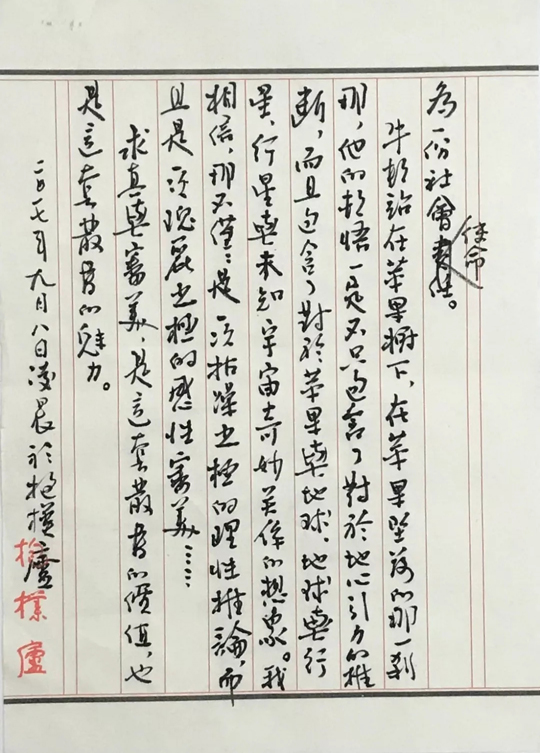 為一份社會使命。
牛頓站在苹果樹下，在苹果墜落的那一剎
那，他的頓悟一定不只包含了對於地心引力的推
斷，而且包含了對於苹果與地球、地球與行
星、行星與未知宇宙奇妙关係的想象。我
相信，那不僅僅是一次枯燥之極的理性推論，而
且是一次瑰麗之極的感性審美……
求真與審美，是這套叢書的價值，也
是這套叢書的魅力。
二〇一七年九月八日凌晨於抱樸廬
樸廬